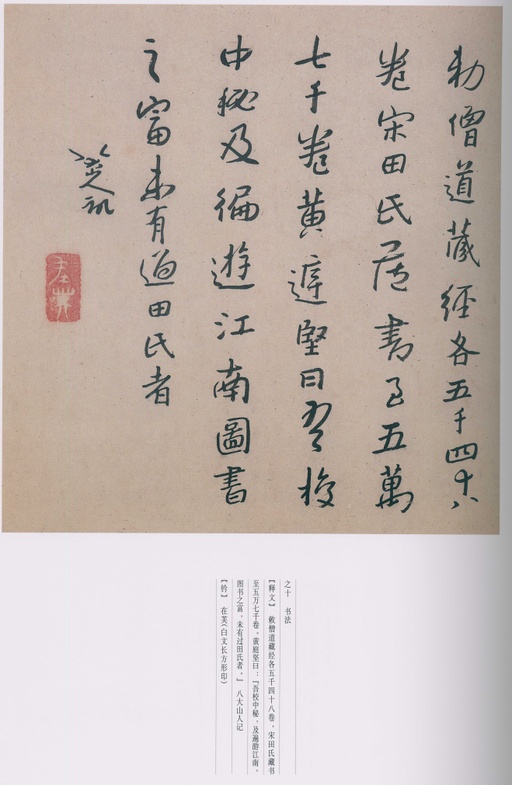 勅僧道藏經各五千四十八
卷宋田氏藏書至五萬
七千卷黄庭堅曰吾校
中秘及徧遊江南圖書
之富未有過田氏者
八大山人記
之十 书法
【释文】 敕僧道藏经各五千四十八卷，宋田氏藏书
至五万七千卷，黄庭坚曰：『吾校中秘，及遍游江南，
图书之富，未有过田氏者。』 八大山人记
【钤】 在芙（白文长方形印）